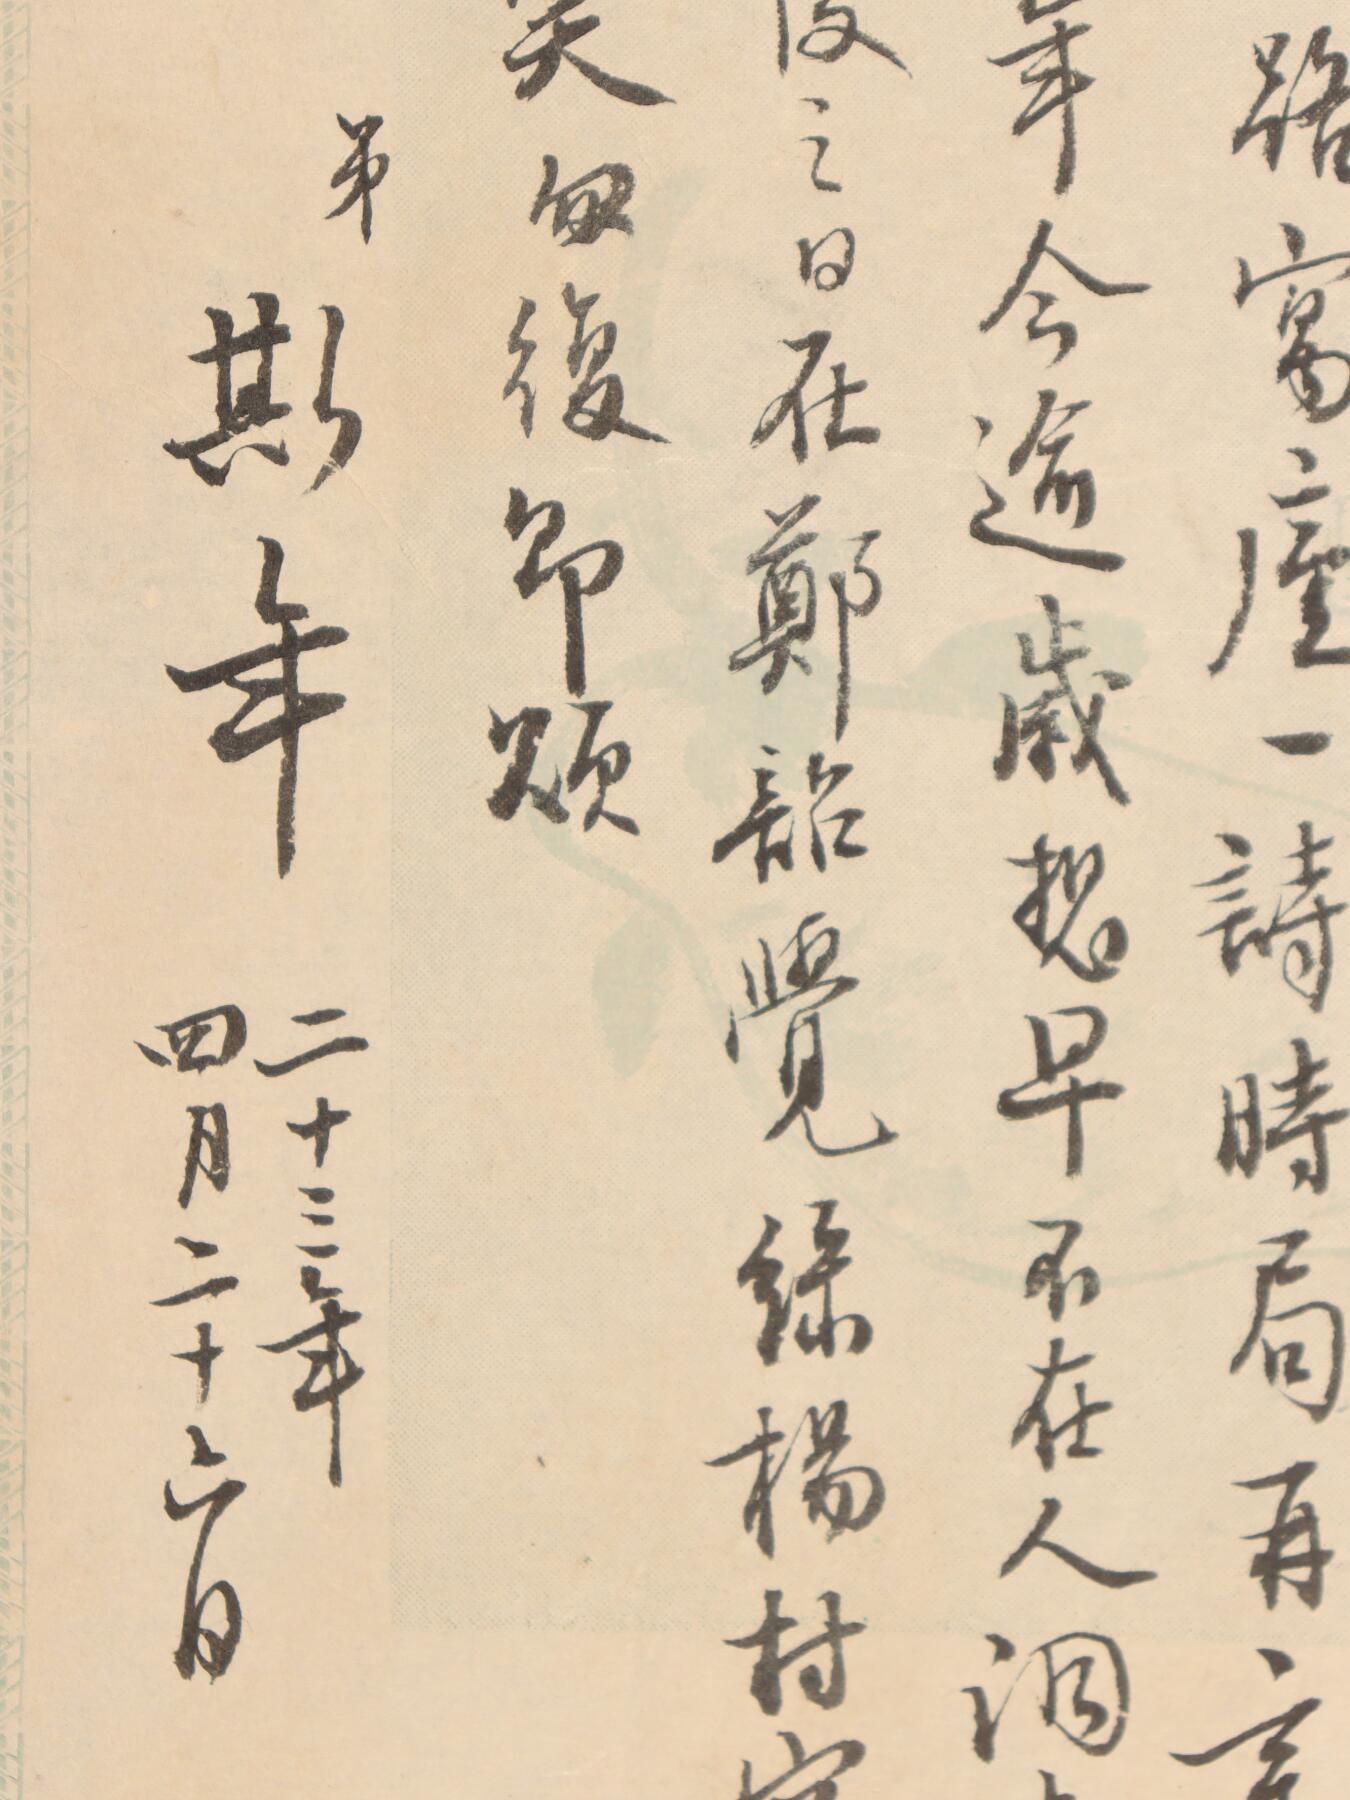 路寓廬一詩時局再
年今逾歲想早不在人
之日在鄭韶覺
楊村
笑匆復即頌
弟斯年
二十三年
四月二十六日